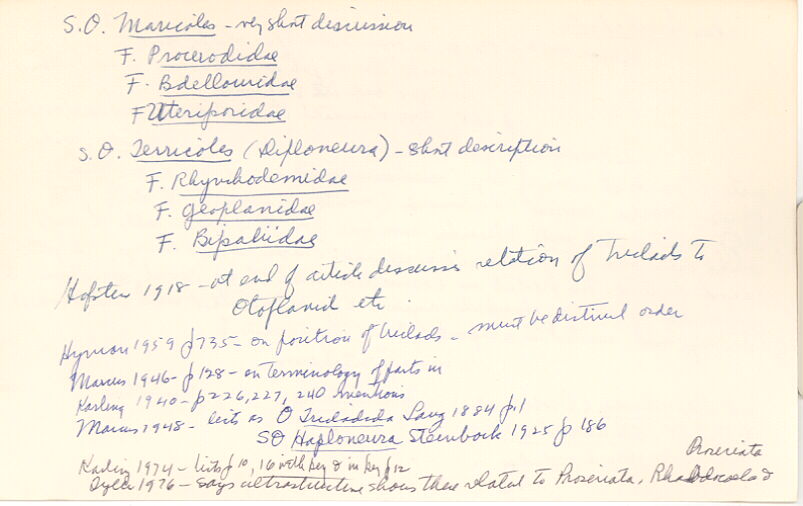 S.O. Maricoles - very short discussion
F. Procerodidae
F. Bdellouridae
F Uteriporidae
S.O. Terricoles (Diploneura) - short description
F. Rhynchodemidae
F. Geoplanidae
F. Bipaliidae
Hofsten 1918 - at end of article discusses relation of Triclads to
Otoplanid etc.
Hyman 1959 p735 - on position of triclads - must be distinct order
Marcus 1946 - p128 - on terminology of parts in
Karling 1940 - p226, 227, 240 mentions
Marcus 1948 - lists as O Tricladida Lang 1884 p1
SO Haploneura Steinbock 1925 p 186
Karling 1974 - lists p10, 16 with key & in key p12
Proseriata
Tyler 1976 - says ultrastructure shows these related to Proseriata,